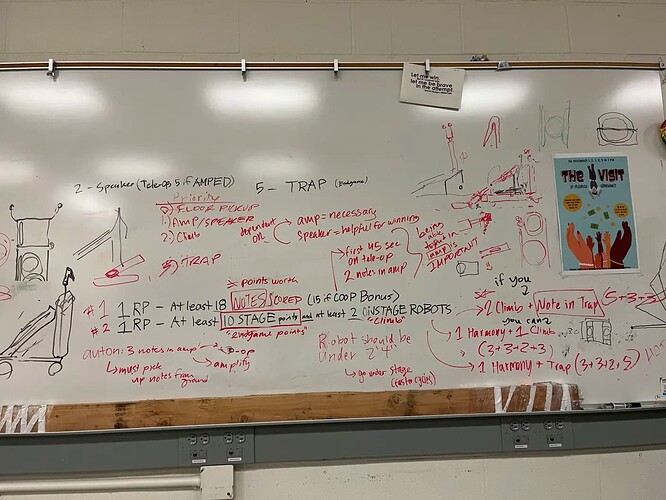 Let me win.
let me be brave
in the attempt
2 - Speaker (Tele-op 5 if AMPED)
5 - TRAP (Endgame)
Priority
0) FLOOR PICKUP
1.) AMP/SPEAKER
2.) Climb
3) TRAP
dependent
on
amp = necessary
Speaker = helpful for winning
first 45 sec
on tele-op
2 notes in amp
being
able
to pick in
amp is
IMPORTANT
points worth
#1 1 RP - At least 18 NOTES SCORED (15 if COOP Bonus)
#2 1 RP - At least 10 STAGE points and at least 2 ONSTAGE ROBOTS
"endgame points"
"climb"
auton: 3 notes in amp
must pick
up notes from
ground
amplify
Robot should be
under 2'4"
go under stage
(faster cycles)
if you
2 Climb + Note in Trap (5+3+3)
you can
1 Harmony + 1 Climb
(3+3+2+3)
1 Harmony + Trap (3+3+2+5)
THE VISIT